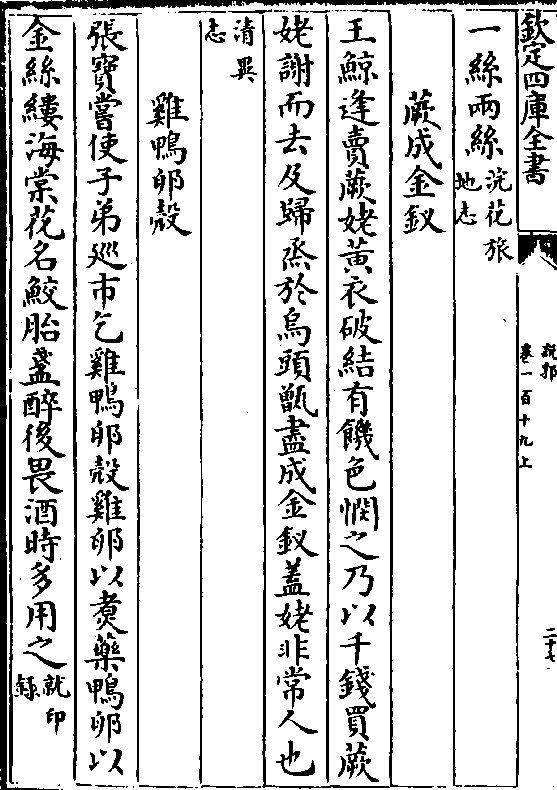 欽定四庫全書
説郛
卷一百十九上
二十七
一絲兩絲浣花旅
地志
蕨成金釵
王鯨逢賣蕨姥黄衣破結有饑色憫之乃以千錢買蕨
姥謝而去及歸烝於烏頭甑盡成金釵蓋姥非常人也
清異
志
雞鴨卵殼
張寶嘗使子弟巡市乞雞鴨卵殼雞卵以煑藥鴨卵以
金絲縷海棠花名鮫胎盞醉後畏酒時多用之就印
錄